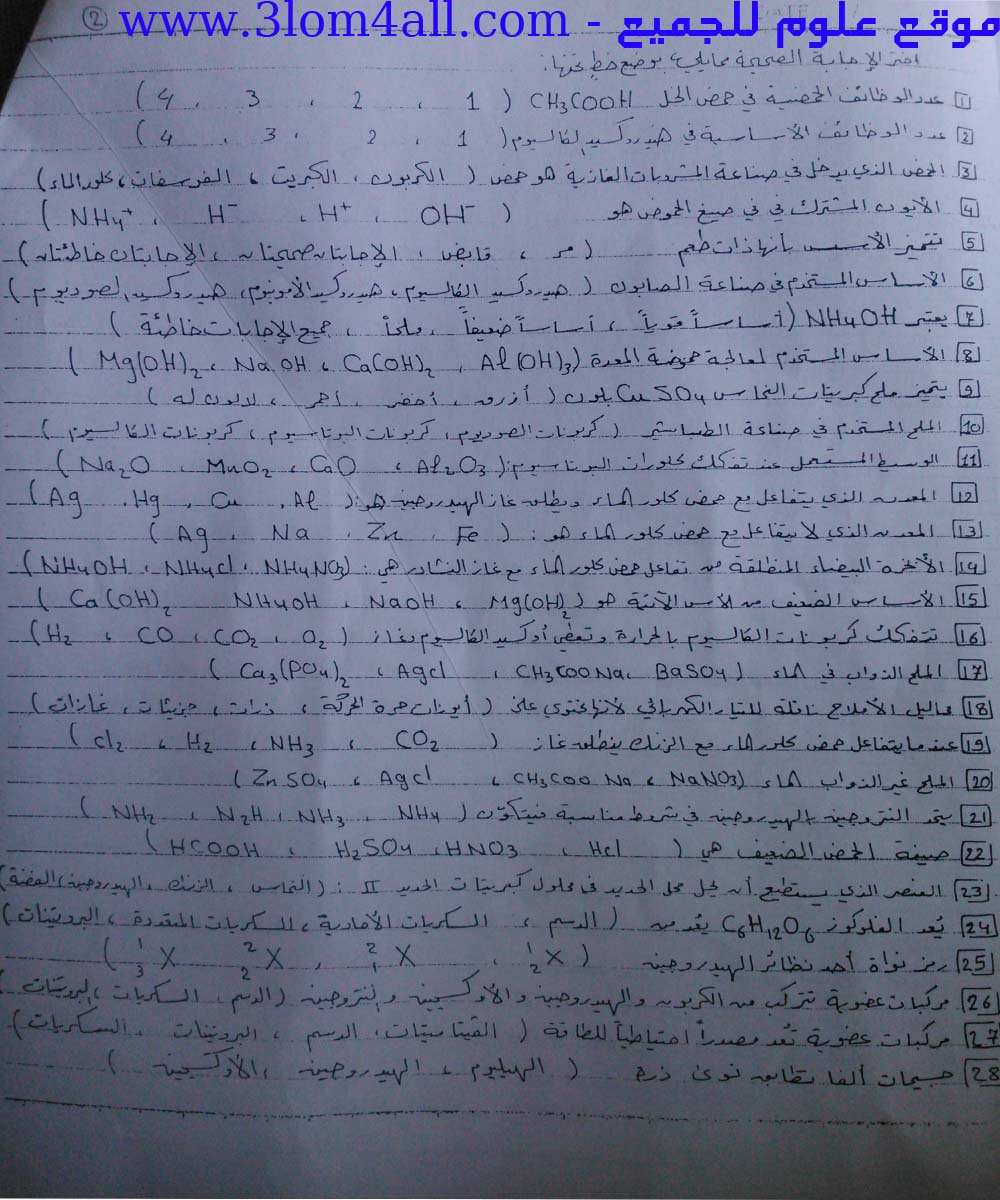 موقع علوم للجميع - www.3lom4all.com
2
اختر الإجابة الصحيحة مما يلي بوضع خط تحتها:
1 عدد الوظائف الحمضية في حمض الخل CH₃COOH ( 1 ، 2 ، 3 ، 4 )
2 عدد الوظائف الأساسية في هيدروكسيد الكالسيوم ( 1 ، 2 ، 3 ، 4 )
3 الحمض الذي يدخل في صناعة المشروبات الغازية هو حمض ( الكربون ، الكبريت ، الفوسفات ، كلور الماء )
4 الأيون المشترك في في صيغ الحموض هو ( OH⁻ ، H⁺ ، H⁻ ، NH₄⁺ )
5 تتميز الأسس بأنها ذات طعم ( مر ، قابض ، الإجابتان صحيحتان ، الإجابتان خاطئتان )
6 الأساس المستخدم في صناعة الصابون ( هيدروكسيد الكالسيوم ، هيدروكسيد الأمونيوم ، هيدروكسيد الصوديوم )
7 يعتبر NH₄OH ( أساساً قوياً ، أساساً ضعيفاً ، ملحاً ، جميع الإجابات خاطئة )
8 الأساس المستخدم لمعالجة حموضة المعدة ( Al(OH)₃ ، Ca(OH)₂ ، NaOH ، Mg(OH)₂ )
9 يتميز ملح كبريتات النحاس CuSO₄ بلون ( أزرق ، أخضر ، أحمر ، لا لون له )
10 الملح المستخدم في صناعة الطباشير ( كربونات الصوديوم ، كربونات البوتاسيوم ، كربونات الكالسيوم )
11 الوسيط المستعمل عند تفكك كلورات البوتاسيوم: ( Al₂O₃ ، CaO ، MnO₂ ، Na₂O )
12 المعدن الذي يتفاعل مع حمض كلور الماء ويطلق غاز الهيدروجين هو: ( Al ، Cu ، Hg ، Ag )
13 المعدن الذي لا يتفاعل مع حمض كلور الماء هو : ( Fe ، Zn ، Na ، Ag )
14 الأبخرة البيضاء المنطلقة من تفاعل حمض كلور الماء مع غاز النشادر هي : ( NH₄NO₃ ، NH₄cl ، NH₄OH )
15 الأساس الضعيف من الأسس الآتية هو ( Mg(OH)₂ ، NaOH ، NH₄OH Ca(OH)₂ )
16 تتفكك كربونات الكالسيوم بالحرارة وتعطي أوكسيد الكالسيوم وغاز ( O₂ ، CO₂ ، CO ، H₂ )
17 الملح الذواب في الماء ( BaSO₄ ، CH₃COONa ، Agcl ، Ca₃(PO₄)₂ )
18 محاليل الأملاح ناقلة للتيار الكهربائي لأنها تحتوي على ( أيونات حرة الحركة ، ذرات ، جزيئات ، غازات )
19 عندما يتفاعل حمض كلور الماء مع الزنك ينطلق غاز ( CO₂ ، NH₃ ، H₂ ، cl₂ )
20 الملح غير الذواب الماء ( NaNO₃ ، CH₃COONa ، Agcl ، ZnSO₄ )
21 يتحد النتروجين بالهيدروجين في شروط مناسبة فيتكوّن ( NH₄ ، NH₃ ، N₂H ، NH₂ )
22 صيغة الحمض الضعيف هي ( Hcl ، HNO₃ ، H₂SO₄ ، HCOOH )
23 العنصر الذي يستطيع أن يحل محل الحديد في محلول كبريتات الحديد II : ( النحاس ، الزنك ، الهيدروجين ، الفضة )
24 يُعد الغلوكوز C₆H₁₂O₆ يعد من ( الدسم ، السكريات الأحادية ، السكريات المتعددة ، البروتينات )
25 رمز نواة أحد نظائر الهيدروجين ( ¹₂X ، ²₁X ، ²₂X ، ¹₃X )
26 مركبات عضوية تتركب من الكربون والهيدروجين والأوكسجين والنتروجين ( الدسم ، السكريات ، البروتينات )
27 مركبات عضوية تُعد مصدراً احتياطياً للطاقة ( الفيتامينات ، الدسم ، البروتينات ، السكريات )
28 جسيمات ألفا تطابق نوى ذرة ( الهيليوم ، الهيدروجين ، الأوكسجين )